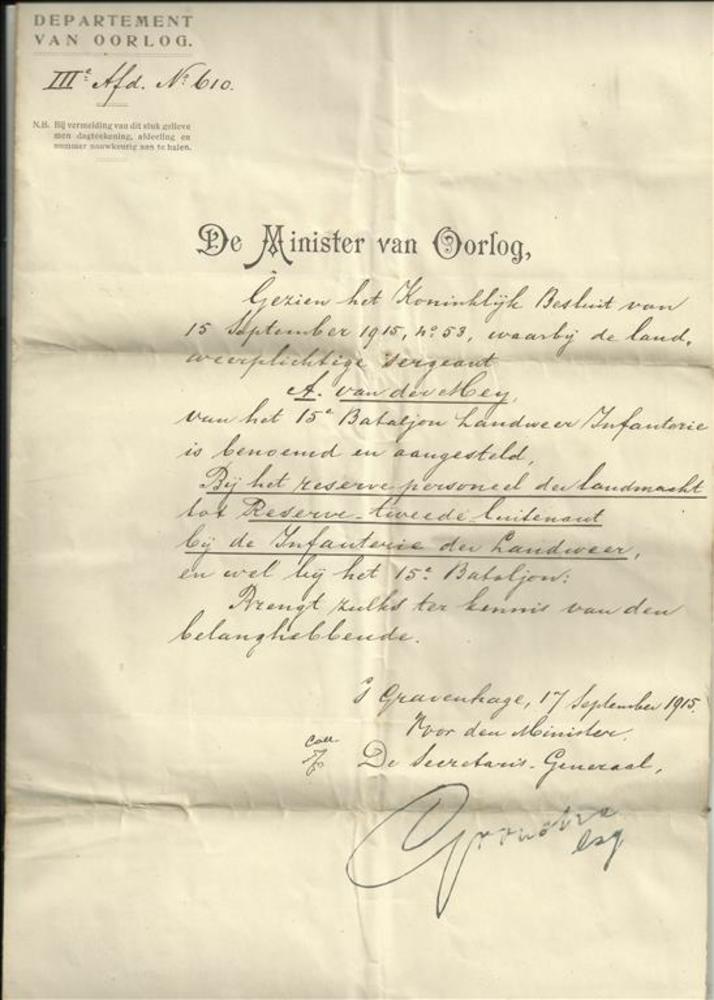 DEPARTEMENT
VAN OORLOG.
IIIe Afd. No 610.
N.B. Bij vermelding van dit stuk gelieve
men dagteekening, afdeeling en
nummer nauwkeurig aan te halen.
De Minister van Oorlog,
Gezien het Koninklijk Besluit van
15 September 1915, no 53, waarbij de land-
weerplichtige sergeant
A. van der Mey,
van het 15e Bataljon Landweer Infanterie
is benoemd en aangesteld,
Bij het reserve personeel der landmacht
tot Reserve-tweede luitenant
bij de Infanterie der Landweer,
en wel bij het 15e Bataljon:
Brengt zulks ter kennis van den
belanghebbende.
's Gravenhage, 17 September 1915.
Voor den Minister,
Coll.
De Secretaris-Generaal,